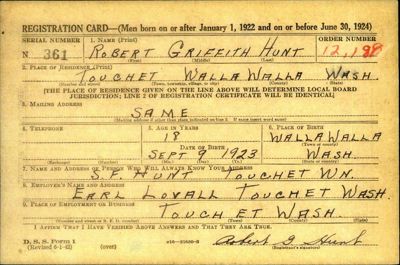 REGISTRATION CARD—(Men born on or after January 1, 1922 and on or before June 30, 1924)
SERIAL NUMBER 1. NAME (Print) ORDER NUMBER
N 361 ROBERT GRIFFITH HUNT 12,198
(First) (Middle) (Last)
2. PLACE OF RESIDENCE (Print)
TOUCHET WALLA WALLA WASH.
(Number and street) (Town, township, village, or city) (County) (State)
[THE PLACE OF RESIDENCE GIVEN ON THE LINE ABOVE WILL DETERMINE LOCAL BOARD
JURISDICTION; LINE 2 OF REGISTRATION CERTIFICATE WILL BE IDENTICAL]
3. MAILING ADDRESS
SAME
[Mailing address if other than place indicated on line 2. If same insert word same]
4. TELEPHONE 5. AGE IN YEARS 6. PLACE OF BIRTH
18 WALLA WALLA
DATE OF BIRTH (Town or county)
SEPT 9 1923 WASH.
(Exchange) (Number) (Mo.) (Day) (Yr.) (State or country)
7. NAME AND ADDRESS OF PERSON WHO WILL ALWAYS KNOW YOUR ADDRESS
S. F. HUNT TOUCHET WN.
8. EMPLOYER'S NAME AND ADDRESS
EARL LOVALL TOUCHET WASH.
9. PLACE OF EMPLOYMENT OR BUSINESS
TOUCHET WASH.
(Number and street or R. F. D. number) (Town) (County) (State)
I AFFIRM THAT I HAVE VERIFIED ABOVE ANSWERS AND THAT THEY ARE TRUE.
D. S. S. Form 1
(Revised 6-1-42) (over) Robert G Hunt
(Registrant's signature)